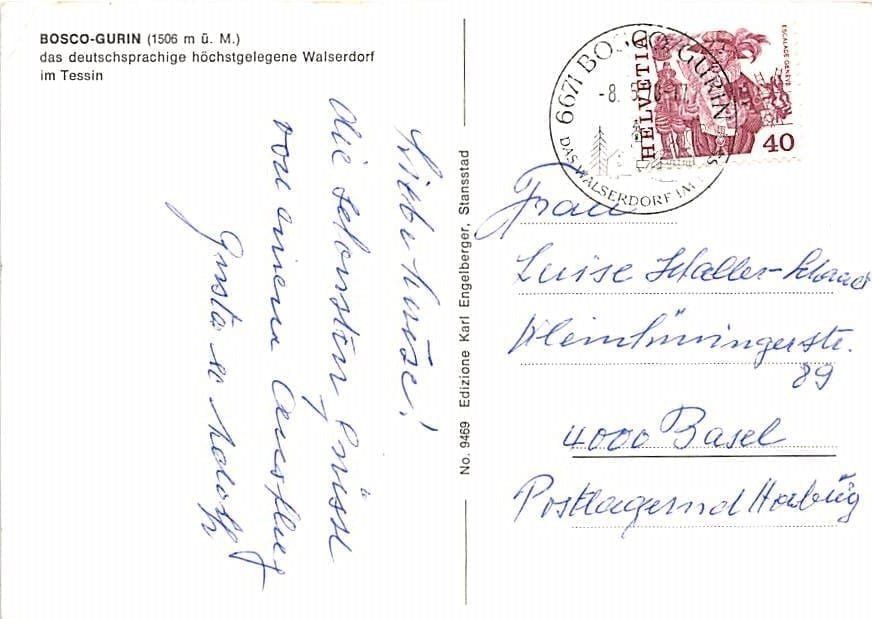 BOSCO-GURIN (1506 m ü. M.)
das deutschsprachige höchstgelegene Walserdorf
im Tessin
Luise!
die schönsten Grüsse
von einem Ausflug
No. 9469 Edizione Karl Engelberger, Stansstad
6671 BOSCO-GURIN
-8.
DAS WALSERDORF IM
HELVETIA
ESCALADE GENÈVE
40
Frau
Luise Schaller-
Kleinhüningerstr.
89
4000 Basel
Postlagernd